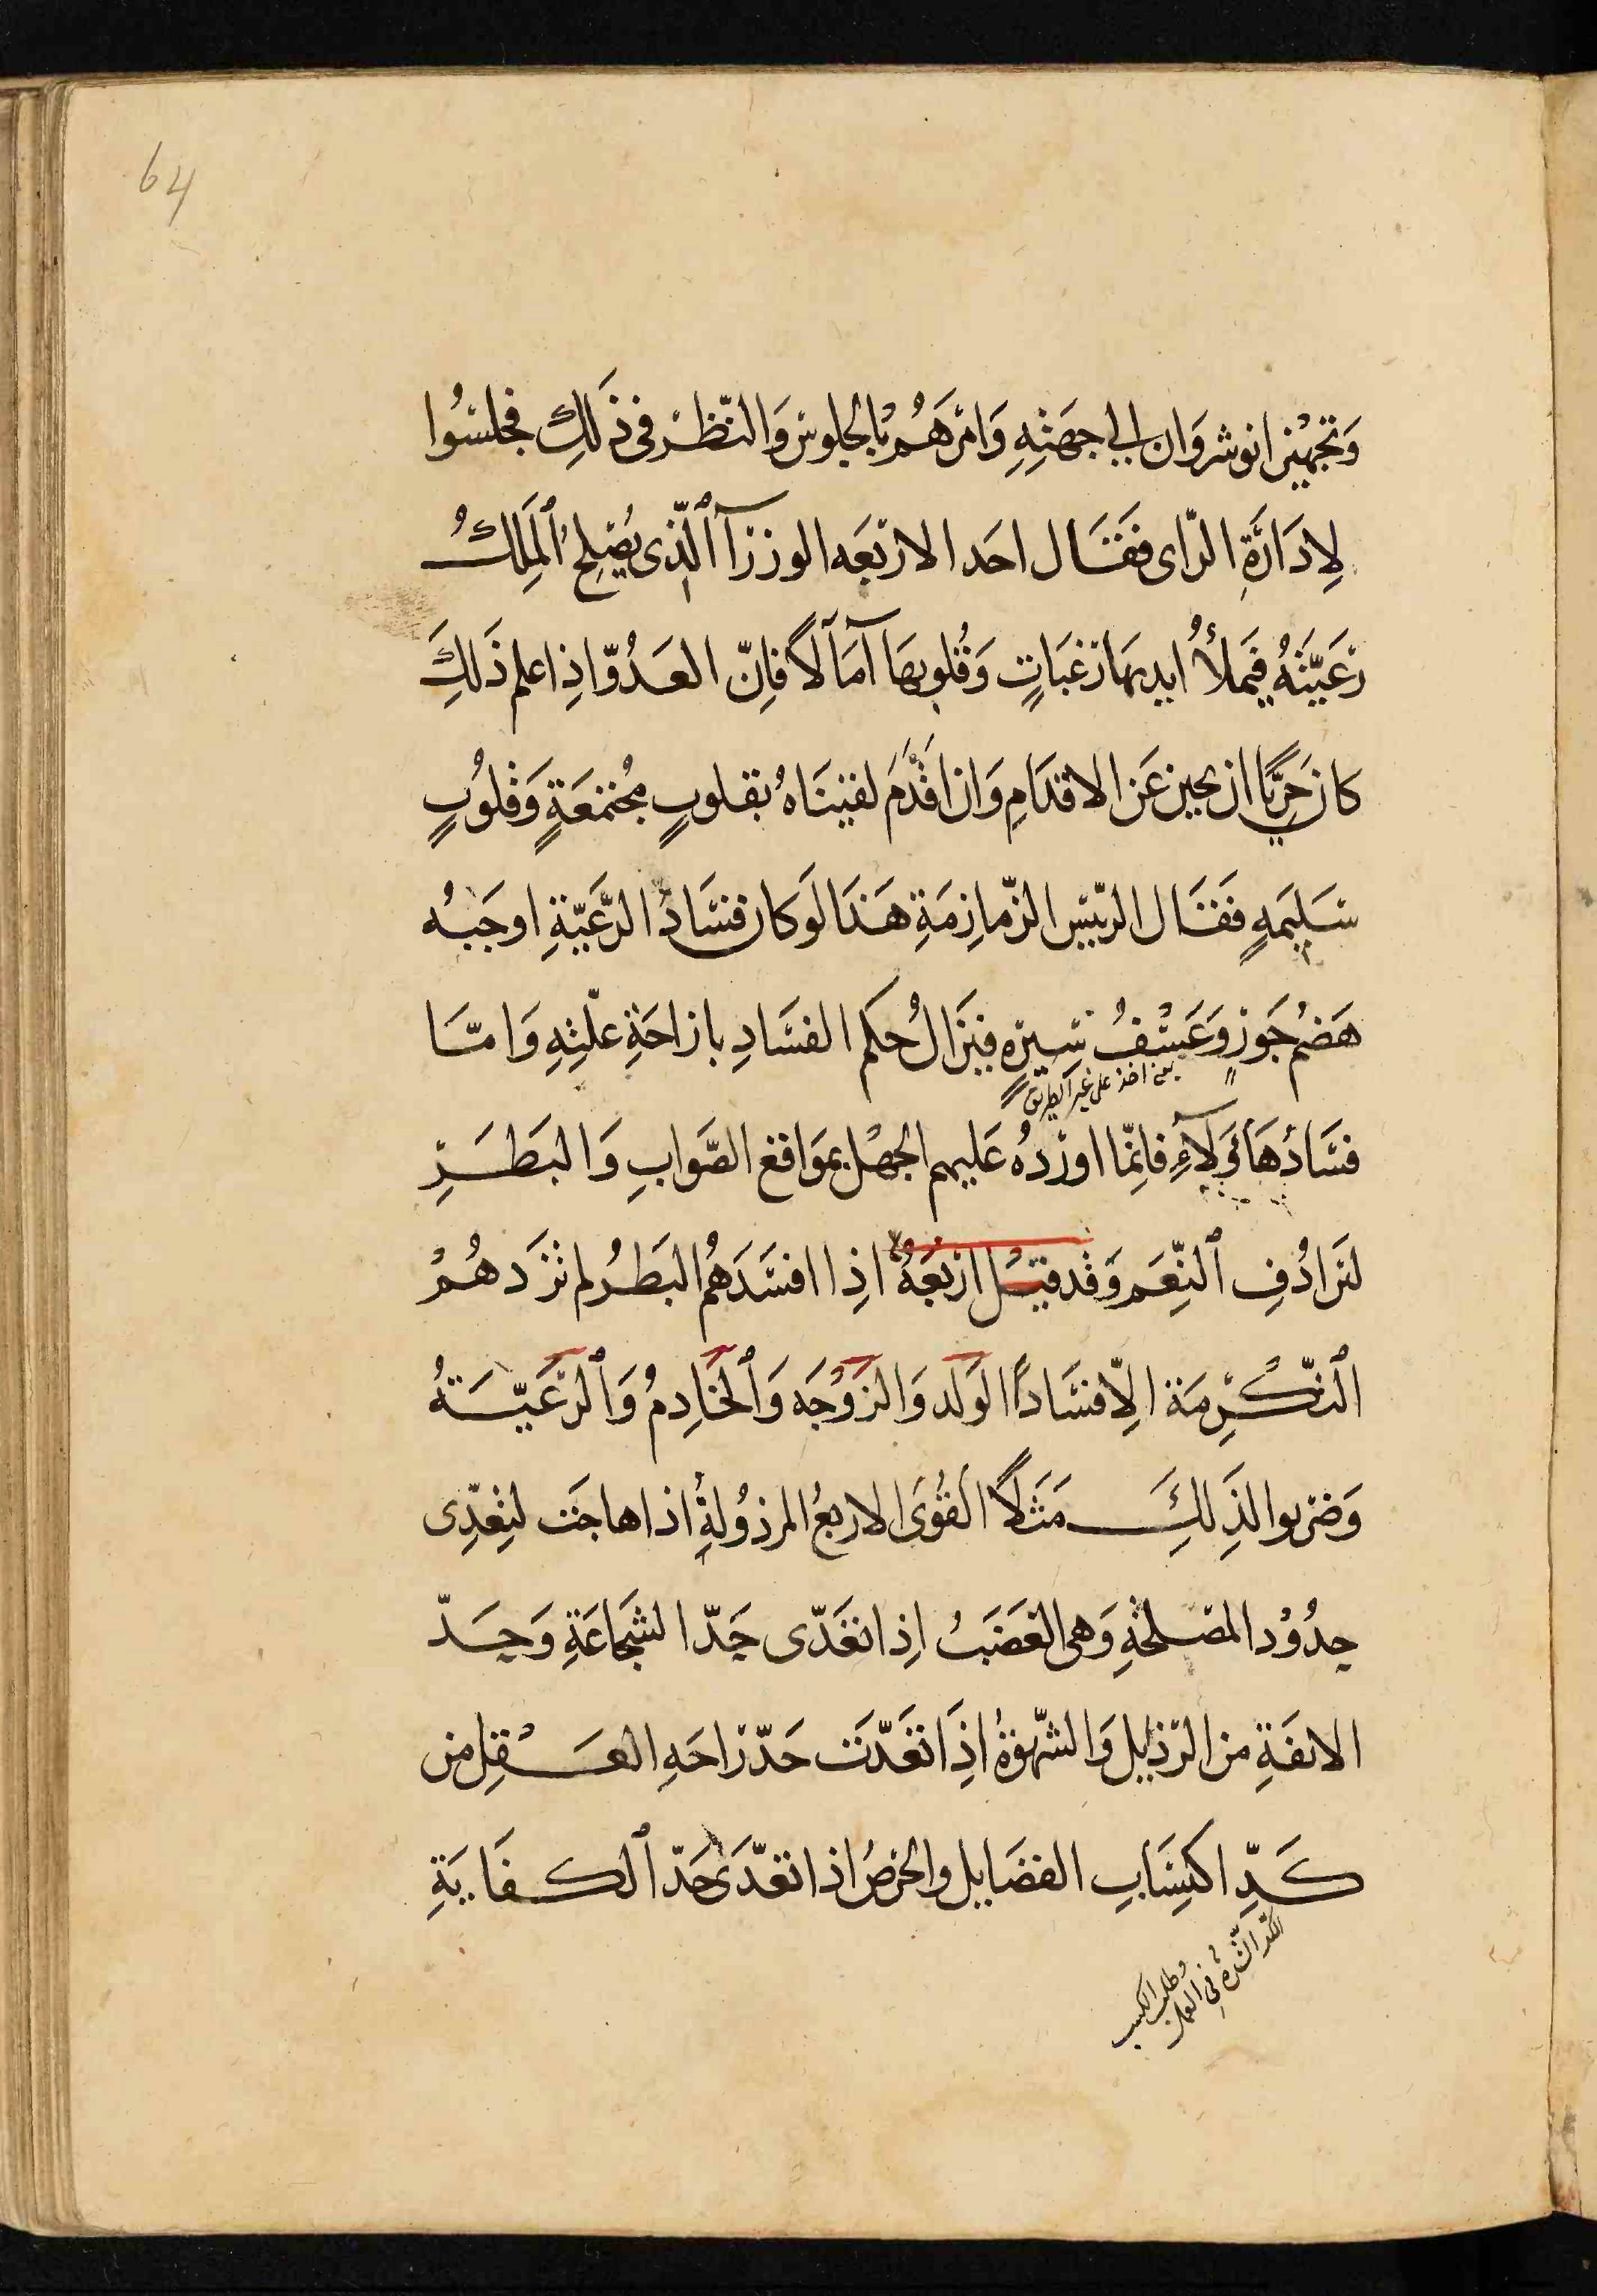 64
وَتجهيز انوشروَان الى جهَتِهِ وَامرَهُم بالجلوس وَالنّظر فى ذَلِكَ فجلسُوا
لِادَارَةِ الرّاى فقَال احَد الاربَعَه الوزرآ الّذى يُصْلِحُ ٱلْمَلِكُ
رَعَيّتَهُ فيَملأُ ايديهَا رَغبَاتٍ وَقُلوبهَا آمَالًا فاِنّ العَدُوّ اذِا علم ذَلِكَ
كان حَريًّا ان يحيز عَن الاقدَامِ وَان اقْدَمَ لقينَاهُ بقلوبٍ مجُتمعَةٍ وَقلُوبٍ
سَليمَهٍ فقَال الرّييس الزّمازمَةِ هَذَا لَو كان فسَادُ الرّعَيّةِ اوجَبهُ
هَضمُ جَورٍ وَعَسْفُ سِيرَةٍ فيزَالُ حُكم الفسَادِ بازاحَةِ علّتِهِ وَامّا
يعنى اخذ على غير الطريق
فسَادُ هَاؤُلآءِ فانِمّا اورَدَهُ عَليهم الجهْل بموَاقع الصّوابِ وَالبَطَرِ
لتَرادُفِ ٱلنِّعَم وَقَد قيْل اربَعَهٌ اذِا افسَدَهمُ البَطَرُ لم تزَدهُمْ
ٱلتّكْرِمَة الِاّ فسَادًا الوَلد وَالزَوْجَه وَٱلخَادِمُ وَٱلرّعَيّةُ
وَضرَبوا لذِلكَ مَثَلًا القُوَى الاربعُ المرذُولةِ اذا هاجَت لتِعَدِّى
حدُوُد المصلحَةِ وَهى الغَضَبُ اذِا تعَدّى حَدّ الشجَاعَةِ وَحَدّ
الانفَةِ من الرّذايل وَالشّهوَةُ اذِا تَعَدّتَ حَدّ رَاحَهِ العَقْلِ من
كَدِّ اكتِسَابِ الفضَايل والحِرْصُ اذا تعَدّى حَدّ ٱلكفَايَةِ
الكدّ الشدّة فى العمل
وطلب الكسب